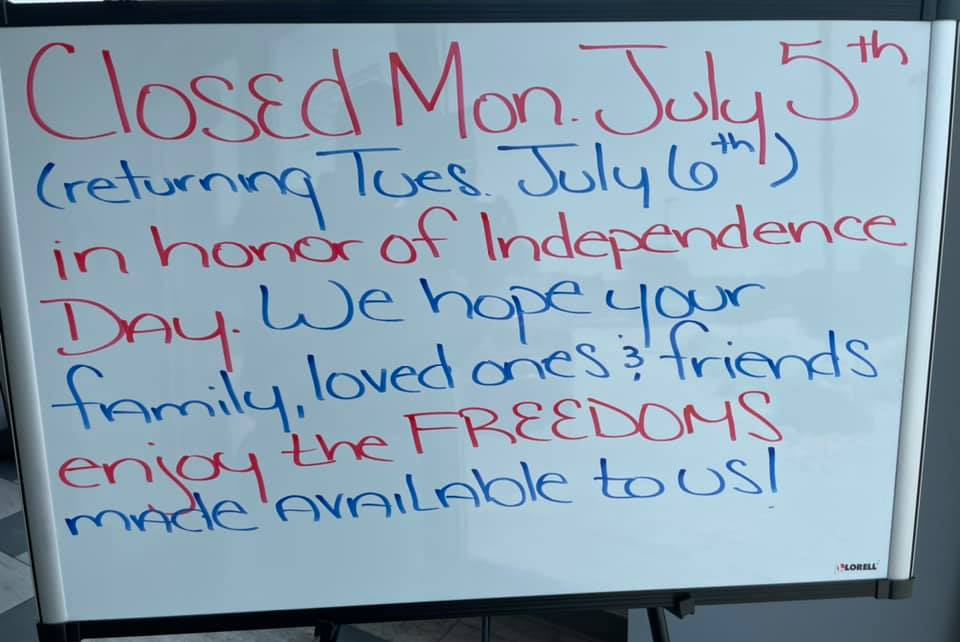 Closed Mon. July 5th
(returning Tues. July 6th)
in honor of Independence
Day. We hope your
family, loved ones & friends
enjoy the FREEDOMS
made AVAILAble to us!
LORELL